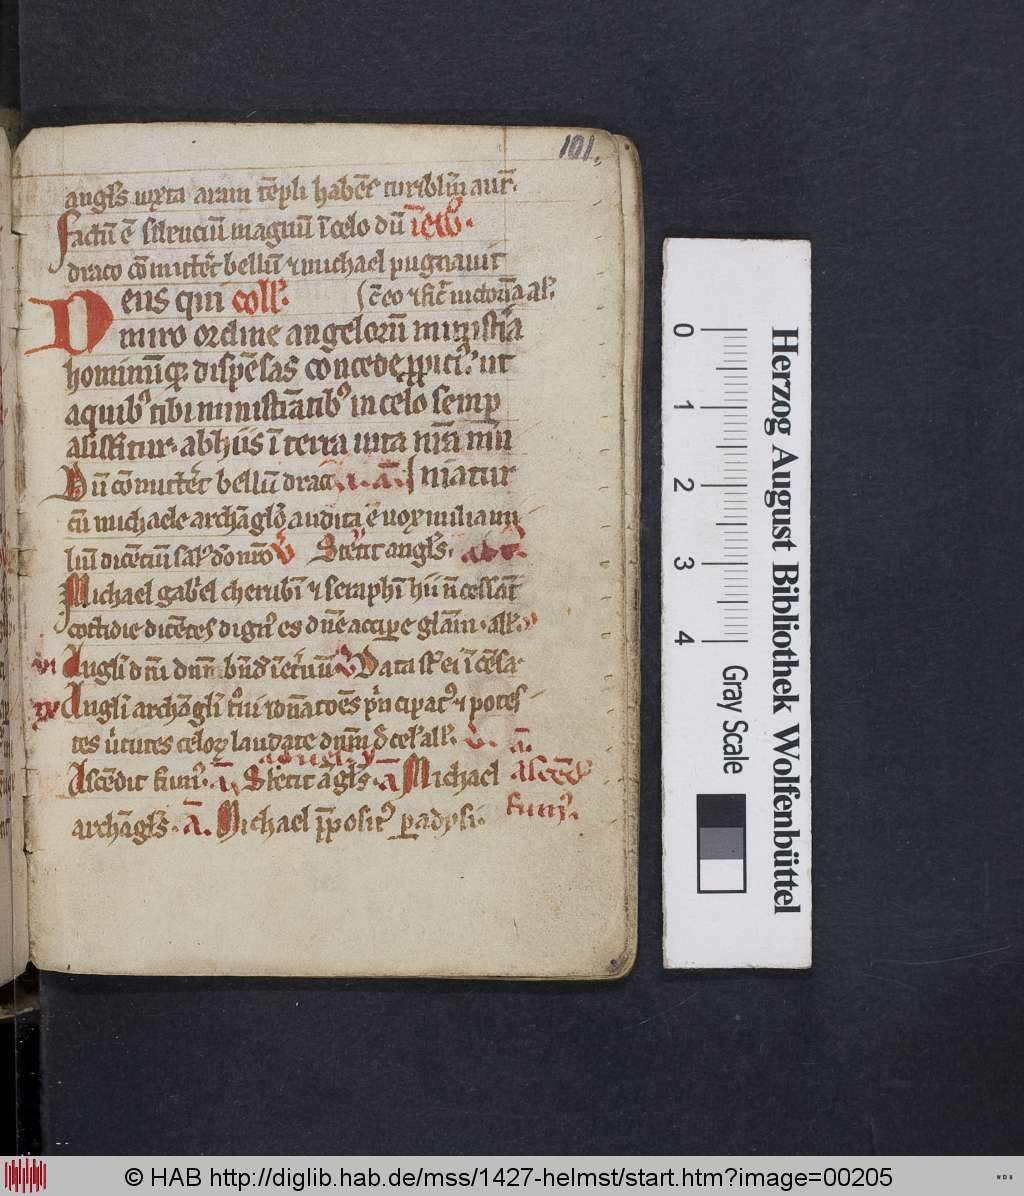 101.
angl's iuxta aram tēpli habēs turiblm aur̄.
factū ē silenciū magnū ī celo dū ī ew.
draco cōmittēt bellū ⁊ michael pugnauit
Deus qui coll'. fēeo ⁊ fic̄ victoria al'.
miro ordine angelorū ministia
hominūq dispēsas concede ppici' ut
a quib' tibi ministrātib' in celo semp
assistitur. ab hiis ī terra uita nr̄a mū
Dū cōmittēt bellū drac v. a. niatur
cū michaele archāglo audita ē uox milia mi
liū dicētiū sal' dō nr̄o v Stetit angl's.
Michael gabiel cherubī ⁊ seraphī hii n̄ cessāt
cottidie dicētes dign' es dn̄e accipe glām. all'.
vi Angli dn̄i dnm bn̄d ī et'nū v Data sī ei īcēsa
Angli archāgli t'ni ⁊ dn̄atoēs p'ncipat' ⁊ potes
tes v'tutes celoꝝ laudate dnm d cel' all'. v. a.
Ascēdit fum'. a Stetit āgl's. a Michael Ascēd
archāgl's. a. Michael p̄posit' paradysi. fum'.
Herzog August Bibliothek Wolfenbüttel
0 1 2 3 4
Gray Scale
© HAB http://diglib.hab.de/mss/1427-helmst/start.htm?image=00205